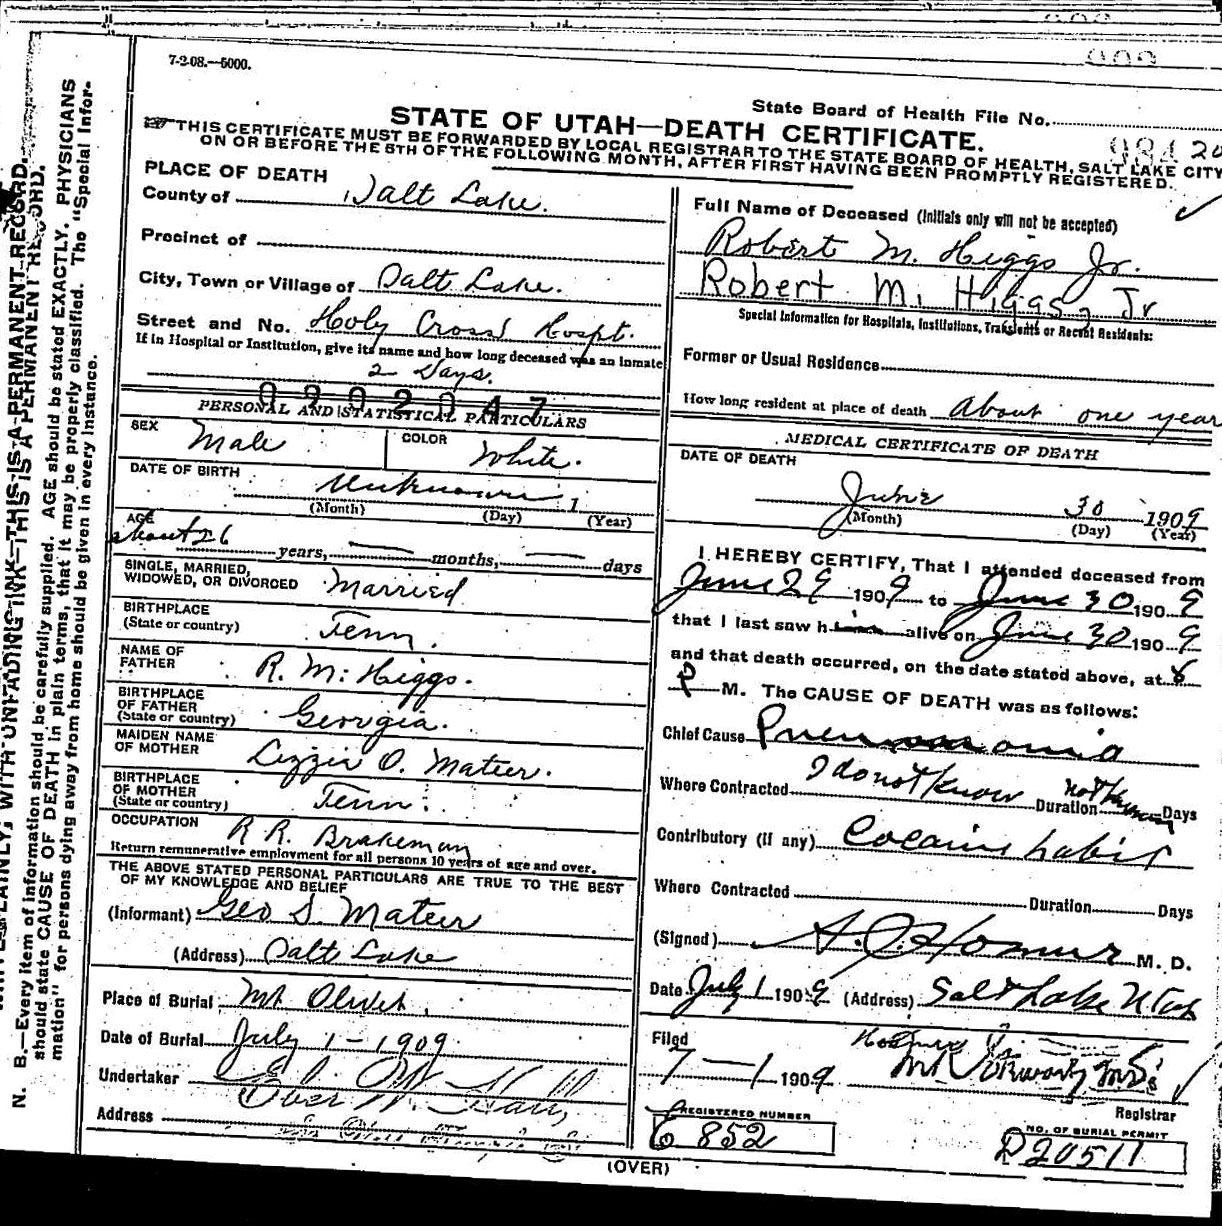 7-2-08.—5000.
State Board of Health File No.
STATE OF UTAH—DEATH CERTIFICATE.
984 20
THIS CERTIFICATE MUST BE FORWARDED BY LOCAL REGISTRAR TO THE STATE BOARD OF HEALTH, SALT LAKE CITY
ON OR BEFORE THE 5TH OF THE FOLLOWING MONTH, AFTER FIRST HAVING BEEN PROMPTLY REGISTERED.
N. B.—Every item of information should be carefully supplied. AGE should be stated EXACTLY. PHYSICIANS
should state CAUSE OF DEATH in plain terms, that it may be properly classified. The "Special Infor-
mation" for persons dying away from home should be given in every instance.
PLACE OF DEATH
County of Salt Lake.
Precinct of
City, Town or Village of Salt Lake.
Street and No. Holy Cross Hospt.
If in Hospital or Institution, give its name and how long deceased was an inmate
2 Days.
0902047
PERSONAL AND STATISTICAL PARTICULARS
SEX Male
COLOR White.
DATE OF BIRTH Unknown 1
(Month) (Day) (Year)
AGE about 26 years, — months, — days
SINGLE, MARRIED,
WIDOWED, OR DIVORCED Married
BIRTHPLACE
(State or country) Tenn.
NAME OF
FATHER R. M. Higgs.
BIRTHPLACE
OF FATHER
(State or country) Georgia.
MAIDEN NAME
OF MOTHER Lizzie O. Mateer.
BIRTHPLACE
OF MOTHER
(State or country) Tenn.
OCCUPATION R R. Brakeman
Return remunerative employment for all persons 10 years of age and over.
THE ABOVE STATED PERSONAL PARTICULARS ARE TRUE TO THE BEST
OF MY KNOWLEDGE AND BELIEF
(Informant) Geo S. Mateer
(Address) Salt Lake
Place of Burial Mt Olivet.
Date of Burial July 1-1909.
Undertaker Eber W. Hall
Eber W. Hall,
Address
Full Name of Deceased (Initials only will not be accepted)
Robert M. Higgs Jr.
Robert M. Higgs, Jr
Special Information for Hospitals, Institutions, Transients or Recent Residents:
Former or Usual Residence
How long resident at place of death About one year
MEDICAL CERTIFICATE OF DEATH
DATE OF DEATH
June 30 1909
(Month) (Day) (Year)
I HEREBY CERTIFY, That I attended deceased from
June 29 1909 to June 30 1909
that I last saw him alive on June 30 1909
and that death occurred, on the date stated above, at 8
P M. The CAUSE OF DEATH was as follows:
Chief Cause Pneumonia
Where Contracted I do not know Duration not known Days
Contributory (if any) Cocaine habit
Where Contracted Duration Days
(Signed) M. D.
Date July 1 1909 (Address) Salt Lake Utah
Filed
7—1 1909
Registrar
REGISTERED NUMBER
6852
NO. OF BURIAL PERMIT
D20511
(OVER)